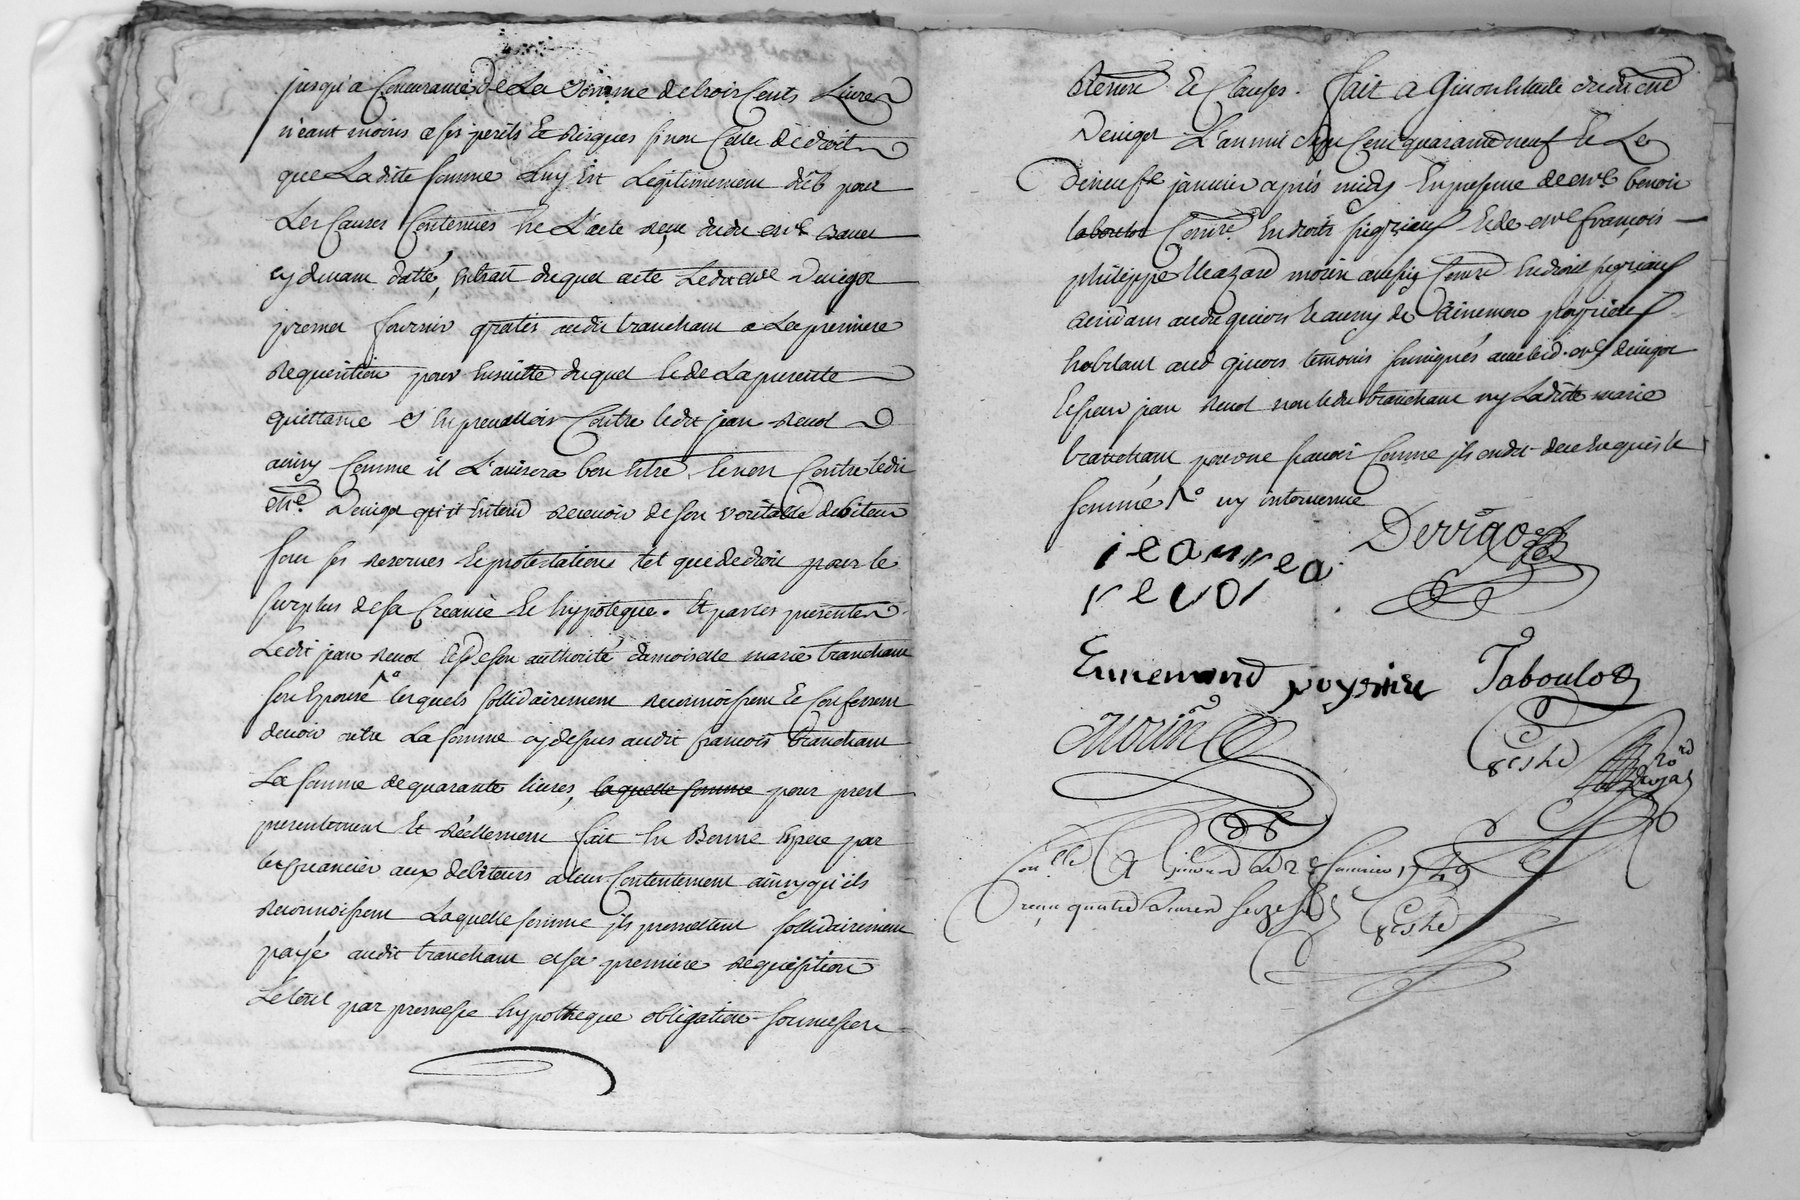 jusqu'a Concurance de La Somme de trois Cents Livres
n'eant moins a ses perils Et risques sinon Celle de droit
que La ditte somme Luy Est Legitimement deb pour
Les Causes Contenues En L'acte reçu dudit me
cy devant datté, Extrait duquel acte Ledit me Derrigot
promet fournir gratis audit tranchant a La premiere
Requisition pour Ensuitte duquel Et de La presente
quittance s'En prevalloir Contre ledit jean revol
ainsy Comme il L'avisera bon Etre, Et non Contre ledit
me. Derrigot qu'il Entend recevoir de son veritable debiteur
sous ses reserves Et protestations tel que de droit pour le
surplus de sa Creance Et hypoteque. Et par les presentes
Ledit jean revol Et de son authorité damoiselle marie tranchant
son Epouse lesquels sollidairement reconnoissent Et Confessent
devoir outre La somme cy dessus audit françois tranchant
La somme de quarante livres, laquelle somme pour prest
presentement Et réellement fait En Bonne Espece par
le Creancier aux debiteurs a leur Contentement ainsy qu'ils
reconnoissent Laquelle somme ils promettent sollidairement
payé audit tranchant a sa premiere requisition
Le tout par promesse hypotheque obligation soumission
Et Clauses. fait a Etude dudit me
Derrigot L'an mil sept Cent quarante neuf Et Le
dixneufe janvier après midy En presence de me benoit
taboulot En droits Et de me françois
philippe Eleazard morin aussy En droit
residans audit Et aimy de Ennemond poysiere
habitant aud temoins soussignés avec led. me derrigot
Et sieur jean revol non ledit tranchant ny Laditte marie
tranchant pour ne sçavoir Comme ils ont dit de ce Enquis Et
sommée ny intervenue
Derrigot
jean
revol
Ennemond poysiere Taboulot
Morin
Con.lle a janvier 1749
reçu quatre livres seize sols